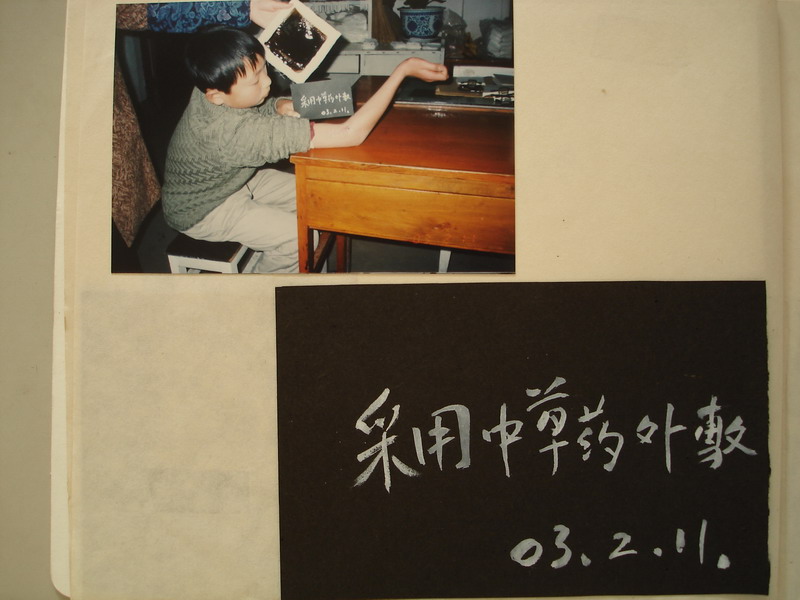 采用中草药外敷
03.2.11.
采用中草药外敷
03.2.11.